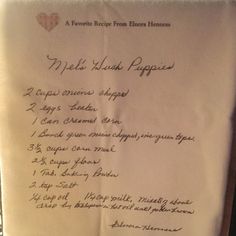 A Favorite Recipe From Elnora Henness
Mel's Hush Puppies
2 cups onions chopped
2 eggs beaten
1 can creamed corn
1 bunch green onions chopped, use green tops
3½ cups corn meal
2½ cups flour
1 Tab. Baking Powder
2 tsp Salt
¼ cup oil 1¼ cup milk, Mix all above
drop by teaspoon in hot oil until golden brown
Elnora Henness